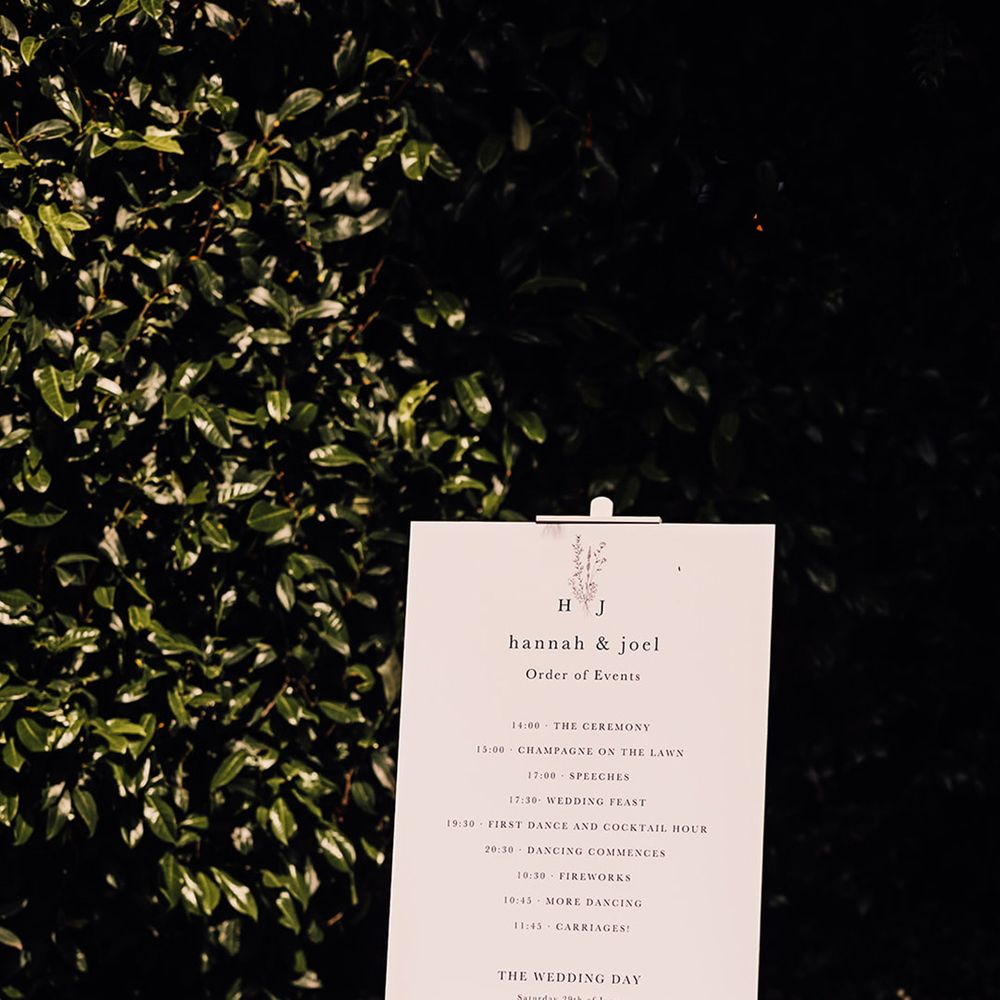 H J
hannah & joel
Order of Events
14:00 · THE CEREMONY
15:00 · CHAMPAGNE ON THE LAWN
17:00 · SPEECHES
17:30· WEDDING FEAST
19:30 · FIRST DANCE AND COCKTAIL HOUR
20:30 · DANCING COMMENCES
10:30 · FIREWORKS
10:45 · MORE DANCING
11:45 · CARRIAGES!
THE WEDDING DAY
Saturday 29th of